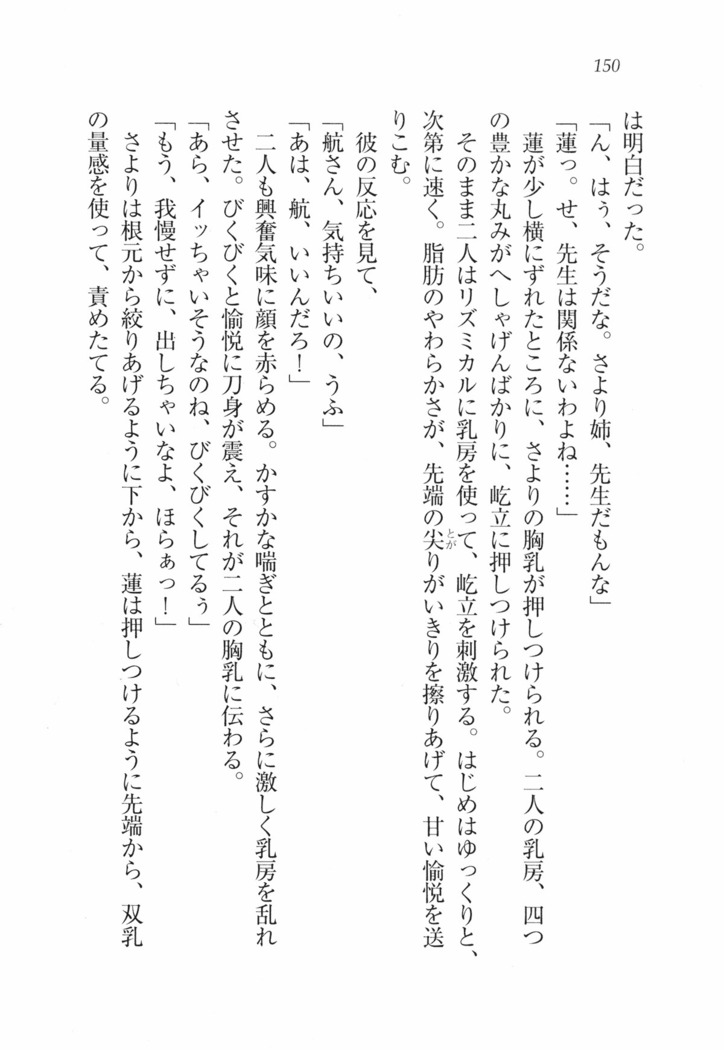 150
は明白だった。
「ん、はぅ、そうだな。さより姉、先生だもんな」
「蓮っ。せ、先生は関係ないわよね……」
蓮が少し横にずれたところに、さよりの胸乳が押しつけられる。二人の乳房、四つ
の豊かな丸みがへしゃげんばかりに、屹立に押しつけられた。
そのまま二人はリズミカルに乳房を使って、屹立を刺激する。はじめはゆっくりと、
次第に速く。脂肪のやわらかさが、先端の尖りがいきりを擦りあげて、甘い愉悦を送
とが
りこむ。
彼の反応を見て、
「航さん、気持ちいいの、うふ」
「あは、航、いいんだろ！」
二人も興奮気味に顔を赤らめる。かすかな喘ぎとともに、さらに激しく乳房を乱れ
させた。びくびくと愉悦に刀身が震え、それが二人の胸乳に伝わる。
「あら、イッちゃいそうなのね、びくびくしてるぅ」
「もう、我慢せずに、出しちゃいなよ、ほらぁっ！」
さよりは根元から絞りあげるように下から、蓮は押しつけるように先端から、双乳
の量感を使って、責めたてる。